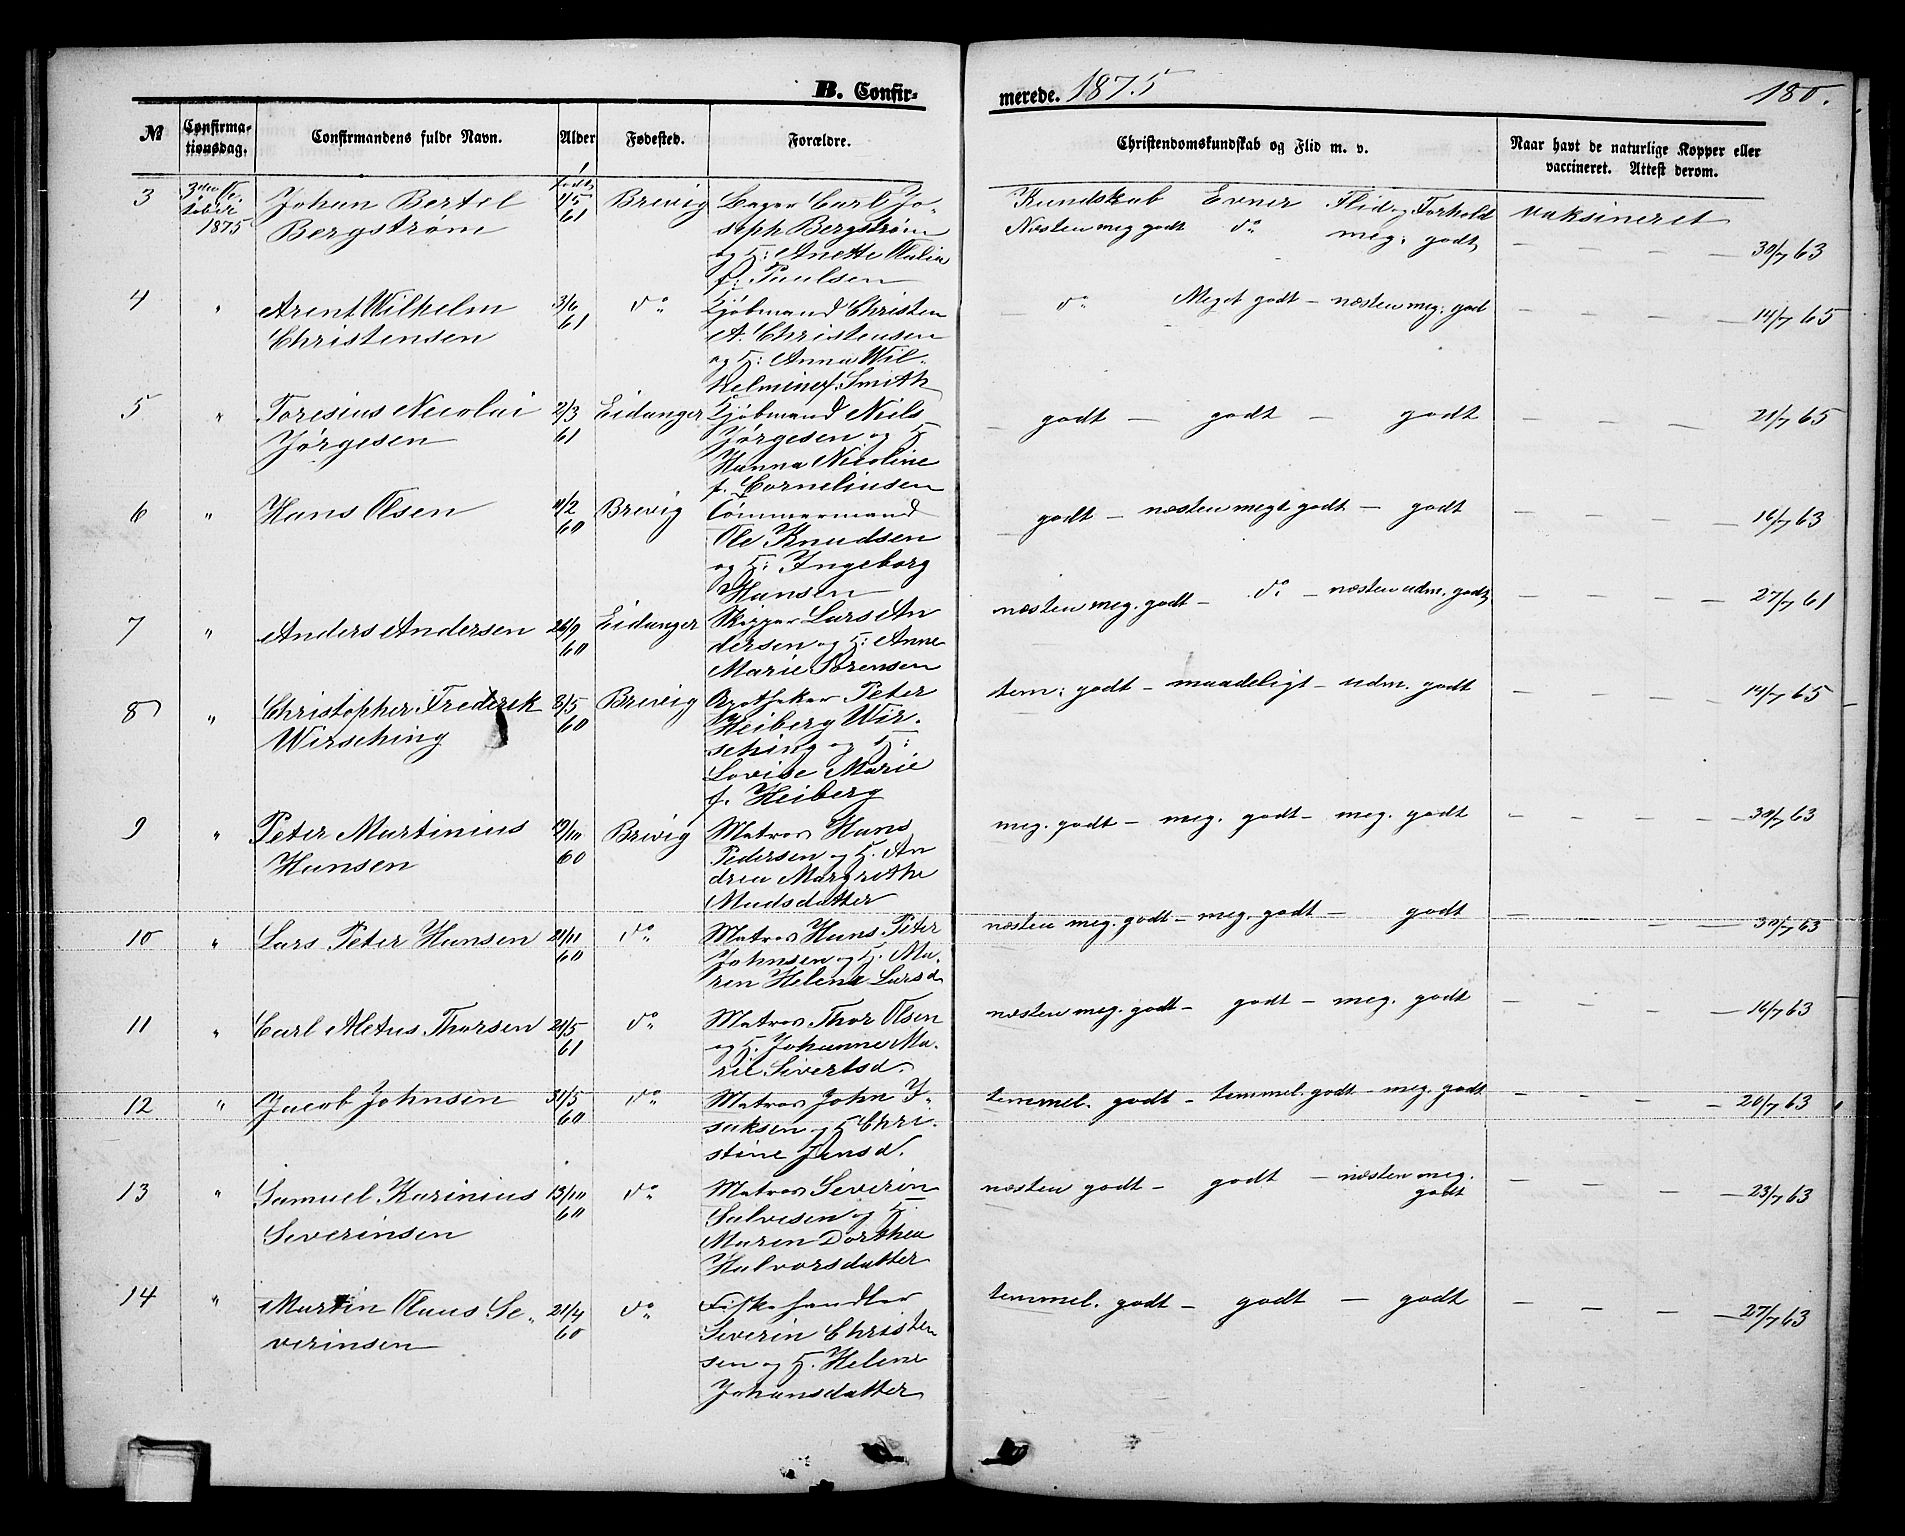 B. Confir-
merede. 1875
180.
№
Confirma-
tionsdag.
Confirmandens fulde Navn.
Alder
Fødested.
Forældre.
Christendomskundskab og Flid m. v.
Naar havt de naturlige Kopper eller
vaccineret. Attest derom.
3
3die Oc-
tober
1875
Johan Bertel
Bergstrøm
født
1/5
61
Brevig
Bager Carl Jo-
seph Bergstrøm
og H: Anette Olalia
f. Paulsen
Kundskab Evner Flid og Forhold
Næsten meg godt do meg. godt
vaksineret
— — — — 30/7 63
4
"
Arent Wilhelm
Christensen
3/6
61
do
Kjøbmand Christen
A. Christensen
og H: Anna Wil-
helmine f. Smith
do Meget godt — næsten meg. god
— — — — 14/7 65
5
"
Toresius Nicolai
Jørgesen
2/3
61
Eidanger
Kjøbmand Niels
Jørgesen og H
Hanna Nicoline
f. Corneliusen
— godt — godt — godt
— — — — 21/7 65
6
"
Hans Olsen
11/2
60
Brevig
Tömmermand
Ole Knudsen
og H: Ingeborg
Hansen
godt — næsten megt godt — godt
— — — — 16/7 63
7
"
Anders Andersen
26/9
60
Eidanger
Skipper Lars An
dersen og H: Anne
Marie Sørensen
næsten meg. godt — do — næsten udm. godt
— — — — 27/7 61
8
"
Christopher Frederek
Wirsching
8/5
60
Brevig
Apotheker Peter
Heiberg Wir-
sching og H:
Lovise Marie
f. Heiberg
tem: godt — maadeligt — udm. godt
— — — — 14/7 65
9
"
Peter Martinius
Hansen
19/10
60
Brevig
Matros Hans
Pedersen og H. An
drea Margrethe
Madsdatter
meg. godt — meg. godt — meg. godt
— — — — 30/7 63
10
"
Lars Peter Hansen
21/11
60
do
Matros Hans Peter
Johnsen og H. Ma-
ren Helene Larsd
næsten meg. godt — meg. godt — godt
— — — 30/7 63
11
"
Carl Aletus Thorsen
21/5
61
do
Matros Thor Olsen
og H. Johanne Ma-
rie Sivertsd.
næsten meg. godt — godt — meg. godt
— — — — 16/7 63
12
"
Jacob Johnsen
31/5
60
do
Matros John I-
saksen og H Chri-
stine Jensd.
temmel. godt — temmel. godt — meg. godt
— — — — 20/7 63
13
"
Samuel Karinius
Severinsen
13/10
60
do
Matros Severin
Salvesen og H.
Maren Dorthea
Halvorsdatter
næsten godt — godt — næsten meg.
godt
— — — — 23/7 63
14
"
Martin Olaus Se-
verinsen
21/4
60
do
Fiskehandler
Severin Christen
sen og H. Helene
Johansdatter
temmel. godt — godt — godt
— — — — 27/7 63